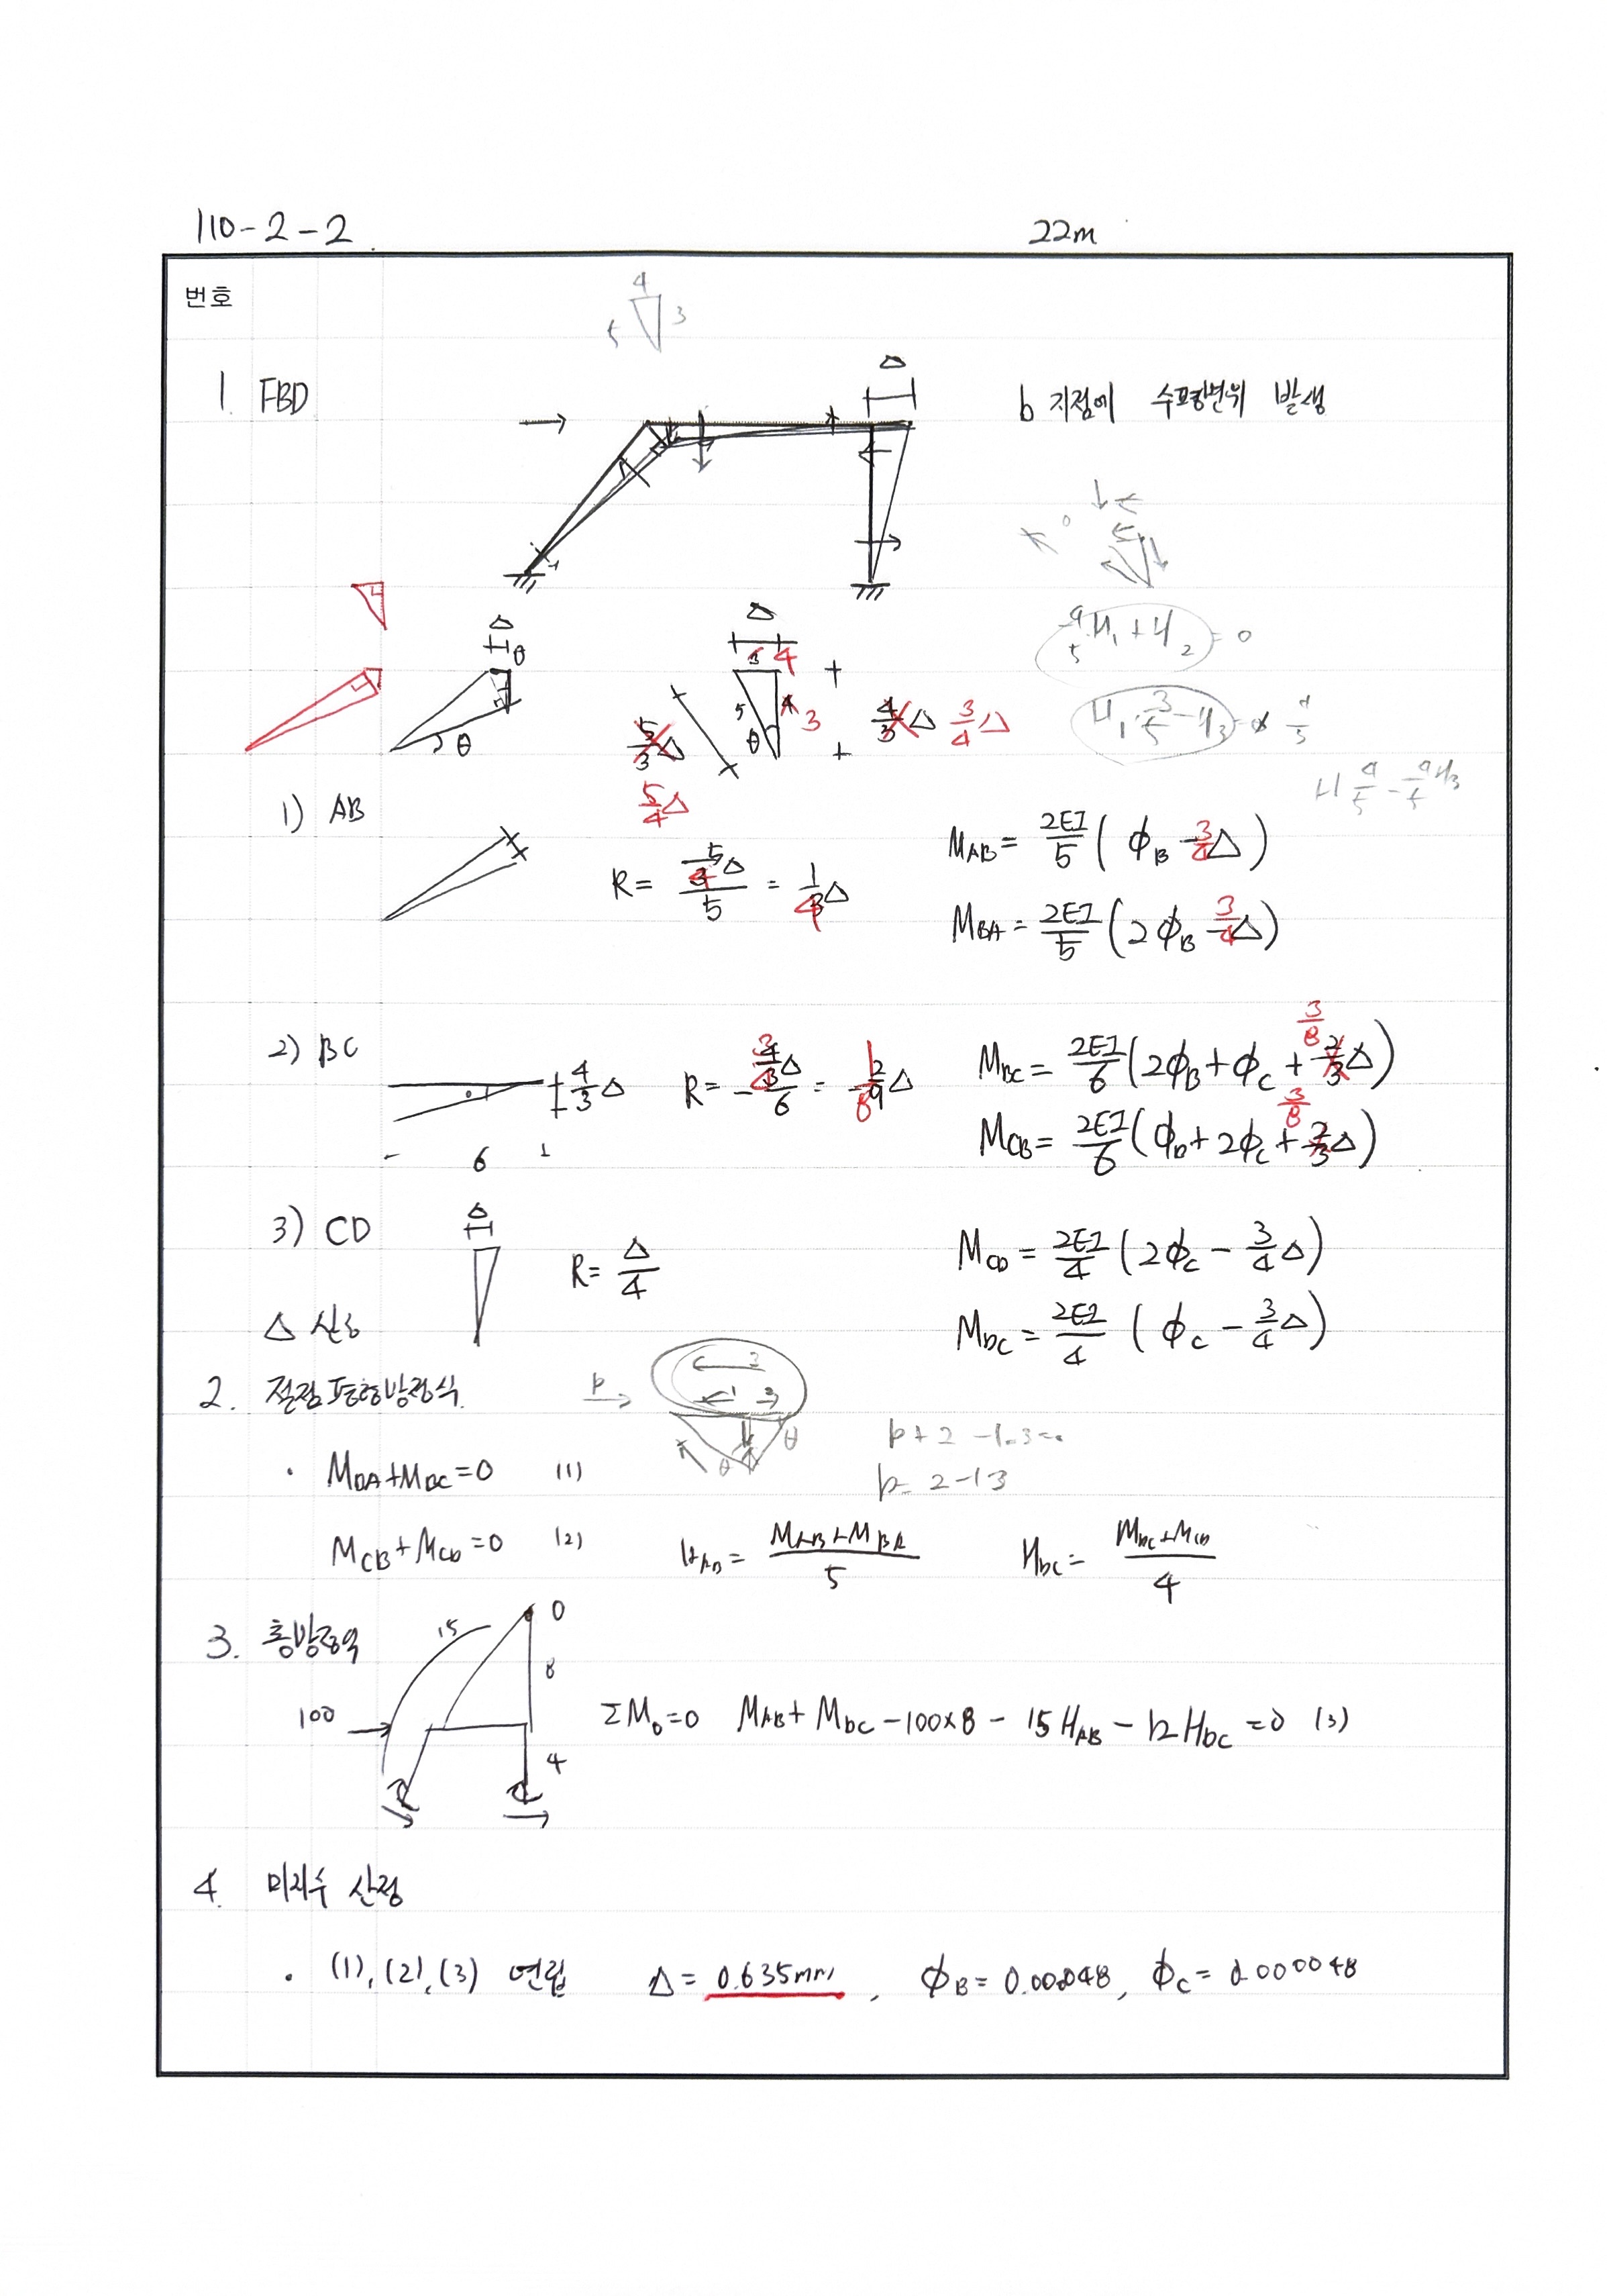 110-2-2 22m
번호
4
5 3
1. FBD
Δ
b 지점에 수평변위 발생
Δ
θ
θ
Δ
3 4
5 4 3
θ
5/3 Δ
5/4 Δ
4/3 Δ 3/4 Δ
1) AB
R= 5/4 Δ / 5 = 1/4 Δ
M_AB = 2EI/5 ( φ_B - 3/4 Δ )
M_BA = 2EI/5 ( 2φ_B - 3/4 Δ )
2) BC
4/3 Δ
6
R= - 3/4 Δ / 6 = - 1/8 Δ
M_BC = 2EI/6 ( 2φ_B + φ_C + 3/8 Δ )
M_CB = 2EI/6 ( φ_B + 2φ_C + 3/8 Δ )
3) CD
Δ
R= Δ/4
M_CD = 2EI/4 ( 2φ_C - 3/4 Δ )
M_DC = 2EI/4 ( φ_C - 3/4 Δ )
Δ 산정
2. 절점평형방정식.
P
p+2-1.3=0
p= 2-1 3
· M_BA+M_BC=0 (1)
M_CB+M_CD=0 (2)
H_AB= M_AB+M_BA / 5
H_DC= M_DC+M_CD / 4
3. 층방정식
15 0
8
100
4
ΣM_0=0 M_AB+M_DC-100×8-15H_AB-12H_DC=0 (3)
4. 미지수 산정
· (1), (2), (3) 연립 Δ= 0.635mm, φ_B= 0.00048, φ_C= 0.000048